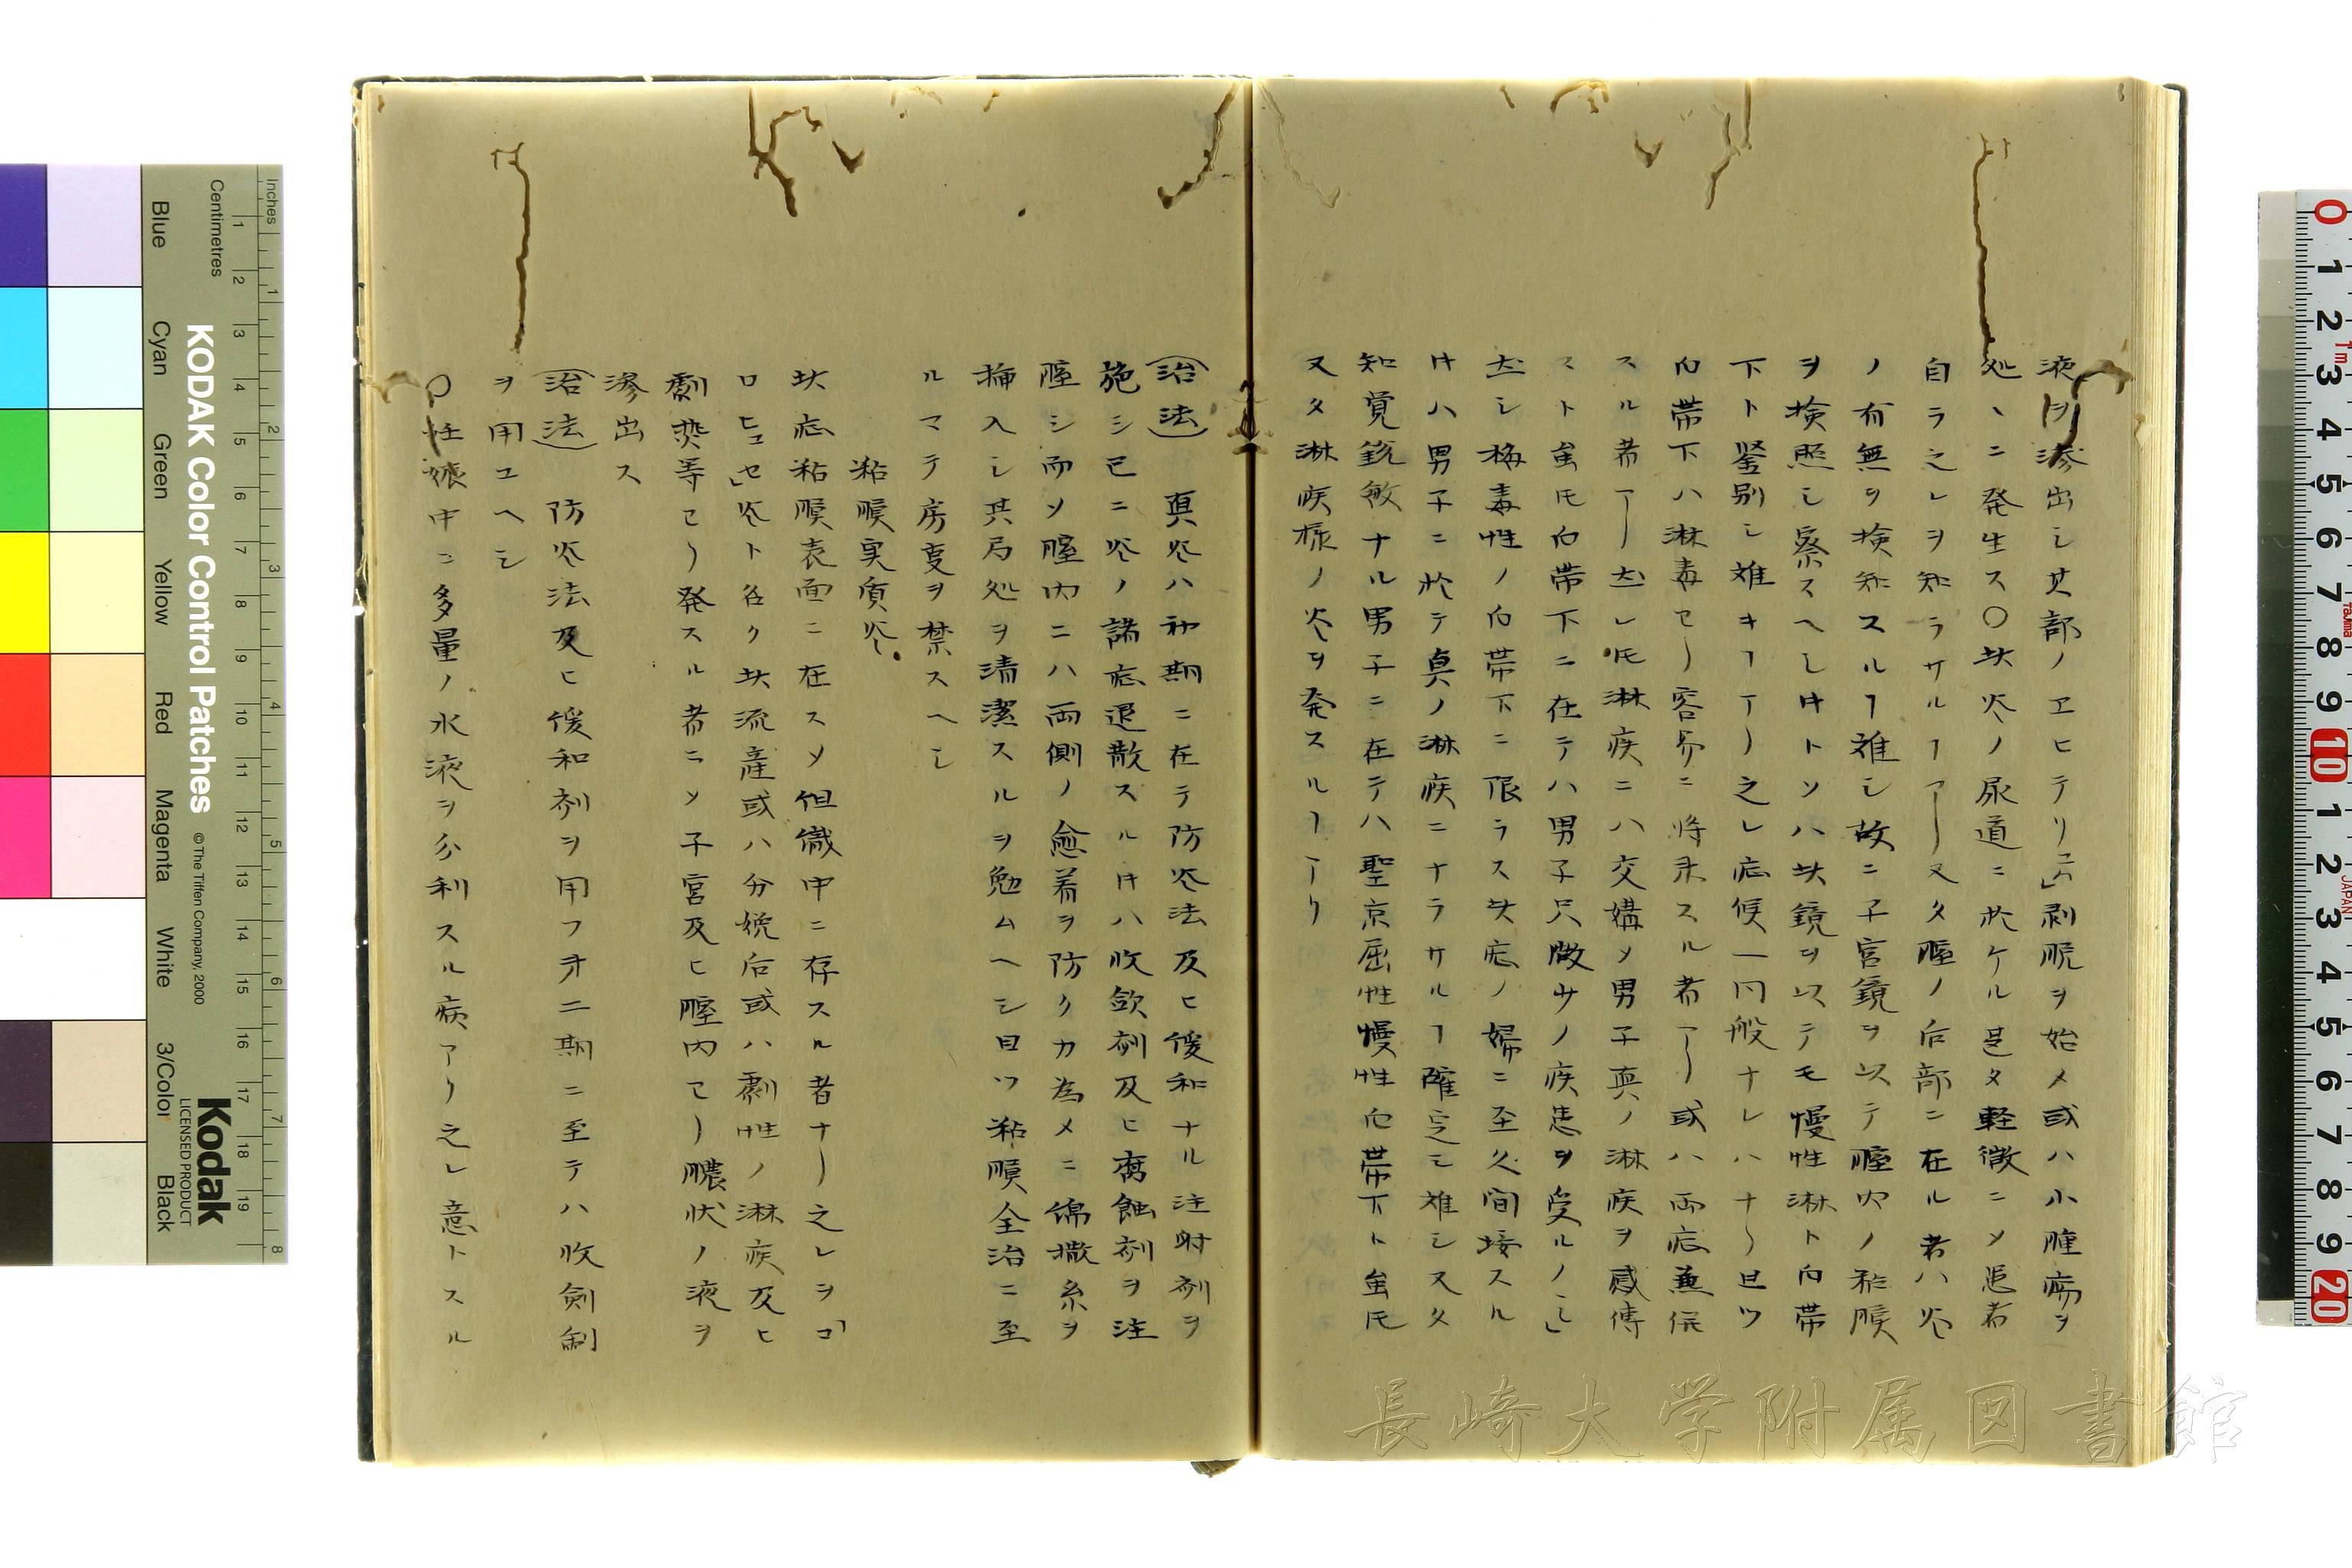 液ヲ滲出シ其部ノヱヒテリ̄ユム」剥脱ヲ始メ或ハ小腫瘍ヲ
処〻ニ発生ス〇此炎ノ尿道ニ於ケル是タ軽微ニメ患者
自ラ之レヲ知ラサルヿアー又タ膣ノ后部ニ在ル者ハ炎
ノ有無ヲ検知スルヿ難シ故ニ子宮鏡ヲ以テ膣内ノ粘膜
ヲ検照シ察スヘシ㕝トソハ此鏡ヲ以テモ慢性淋ト白帯
下ト鑒別シ難キヿアリ之レ症候一同般ナレハナリ且ツ
白帯下ハ淋毒ヨリ容易ニ将来スル者アー或ハ両症兼併
スル者アー㐧レ𪜈淋疾ニハ交媾メ男子真ノ淋疾ヲ感傳
スト虽𪜈白帯下ニ在テハ男子只微少ノ疾患ヲ受ルノミ」
㐧シ梅毒性ノ白帯下ニ限ラス此症ノ婦ニ至久間接スル
㕝ハ男子ニ於テ真ノ淋疾ニナラサルヿ確定シ難シ又タ
知覚鋭敏ナル男子ニ在テハ聖京屈性慢性白帯下ト虽𪜈
又タ淋疾様ノ炎ヲ発スルヿアリ
(治法) 真炎ハ初期ニ在テ防炎法及ヒ緩和ナル注射剤ヲ
施シ已ニ炎ノ諸症退散スル㕝ハ收歛剤及ヒ腐蝕剤ヲ注
膣シ而メ膣内ニハ両側ノ愈着ヲ防クカ為メニ綿撒糸ヲ
挿入シ其局処ヲ清潔スルヲ勉ムヘシ且ツ粘膜全治ニ至
ルマテ房事ヲ禁スヘシ
粘膜実質炎
此症粘膜表面ニ在スメ但織中ニ存スル者ナー之レヲ「コ
ロヒュセ」炎ト名ク此流産或ハ分娩后或ハ劇性ノ淋疾及ヒ
劇焚等ヨリ発スル者ニメ子宮及ヒ膣内ヨリ膿状ノ液ヲ
滲出ス
(治法) 防炎法及ヒ緩和剤ヲ用フ㐧二期ニ至テハ收斂剤
ヲ用ユヘシ
〇妊娠中ニ多量ノ水液ヲ分利スル病アリ之レ意トスル
長崎大学附属図書館
KODAK Color Control Patches
© The Tiffen Company, 2000
Kodak
LICENSED PRODUCT
Inches
Centimetres
Blue
Cyan
Green
Yellow
Red
Magenta
White
3/Color
Black